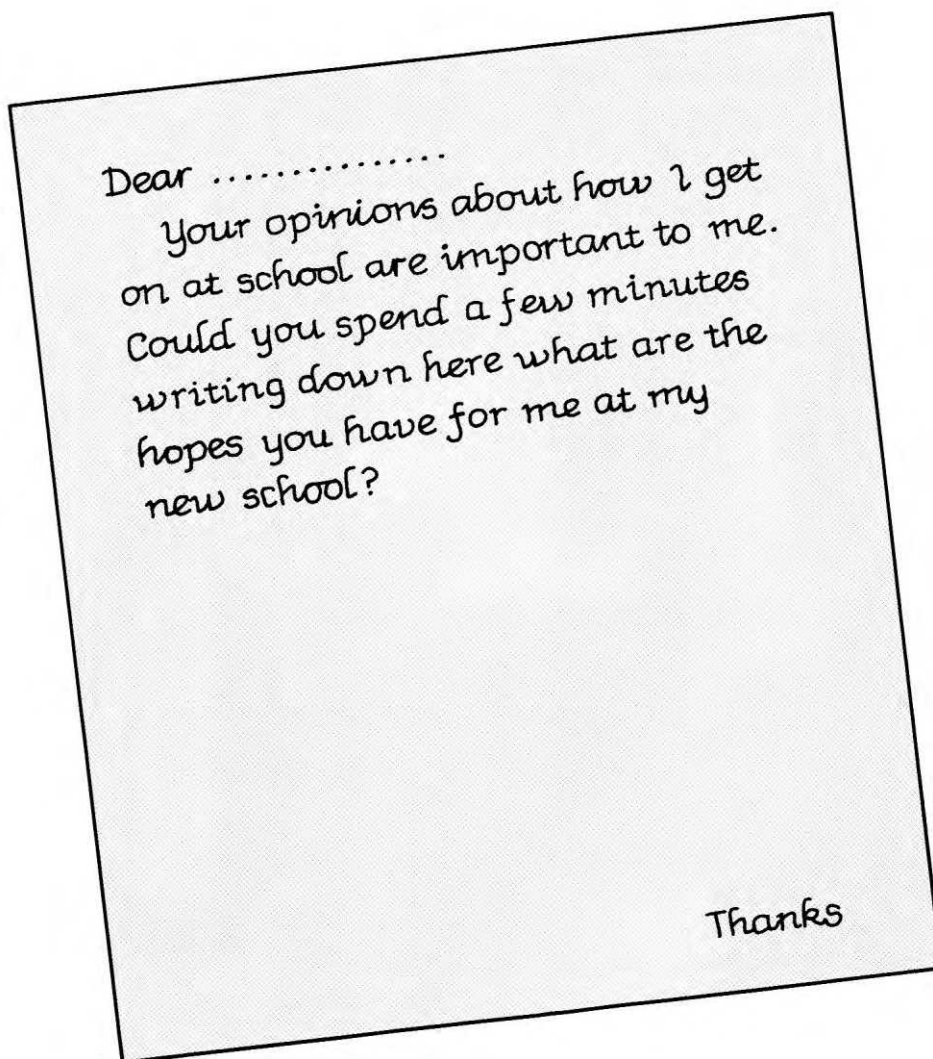 Dear ...............
Your opinions about how I get
on at school are important to me.
Could you spend a few minutes
writing down here what are the
hopes you have for me at my
new school?
Thanks